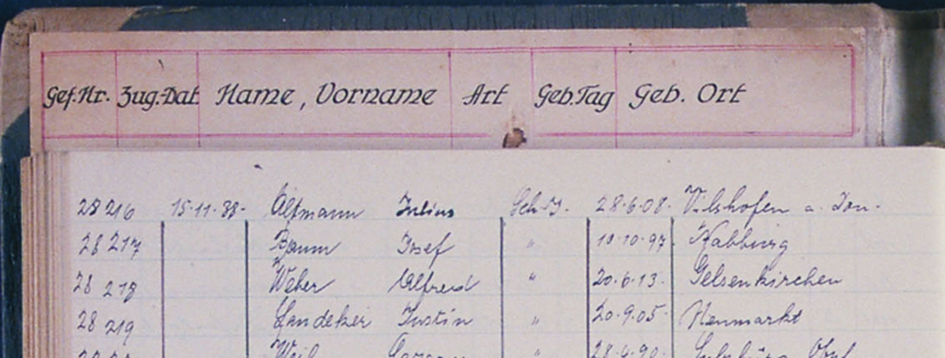 Gef.Nr. Zug.Dat Name, Vorname Art Geb.Tag Geb. Ort
28216 15.11.38. Altmann Julius Sch.J. 28.6.08. Vilshofen a. Don.
28217 Baum Josef " 10.10.97. Nabburg
28218 Weber Alfred " 20.6.13. Gelsenkirchen
28219 Landecker Justin " 20.9.05. Neumarkt
28.4.90.